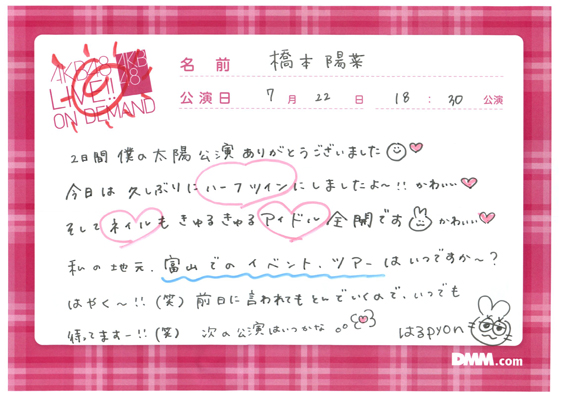 AKB48
AKB48
LIVE!!
ON DEMAND
名前 橋本 陽菜
公演日 7月22日 18:30公演
2日間 僕の太陽公演 ありがとうございました
今日は 久しぶりにハーフツインにしましたよ〜!! かわいい
そして ネイルも きゅるきゅるアイドル全開です かわいい
私の地元、富山でのイベント、ツアーはいつですか〜?
はやく〜!!(笑) 前日に言われてもとんでいくので、いつでも
待ってますー!!(笑) 次の公演はいつかな
はるpyon
DMM.com